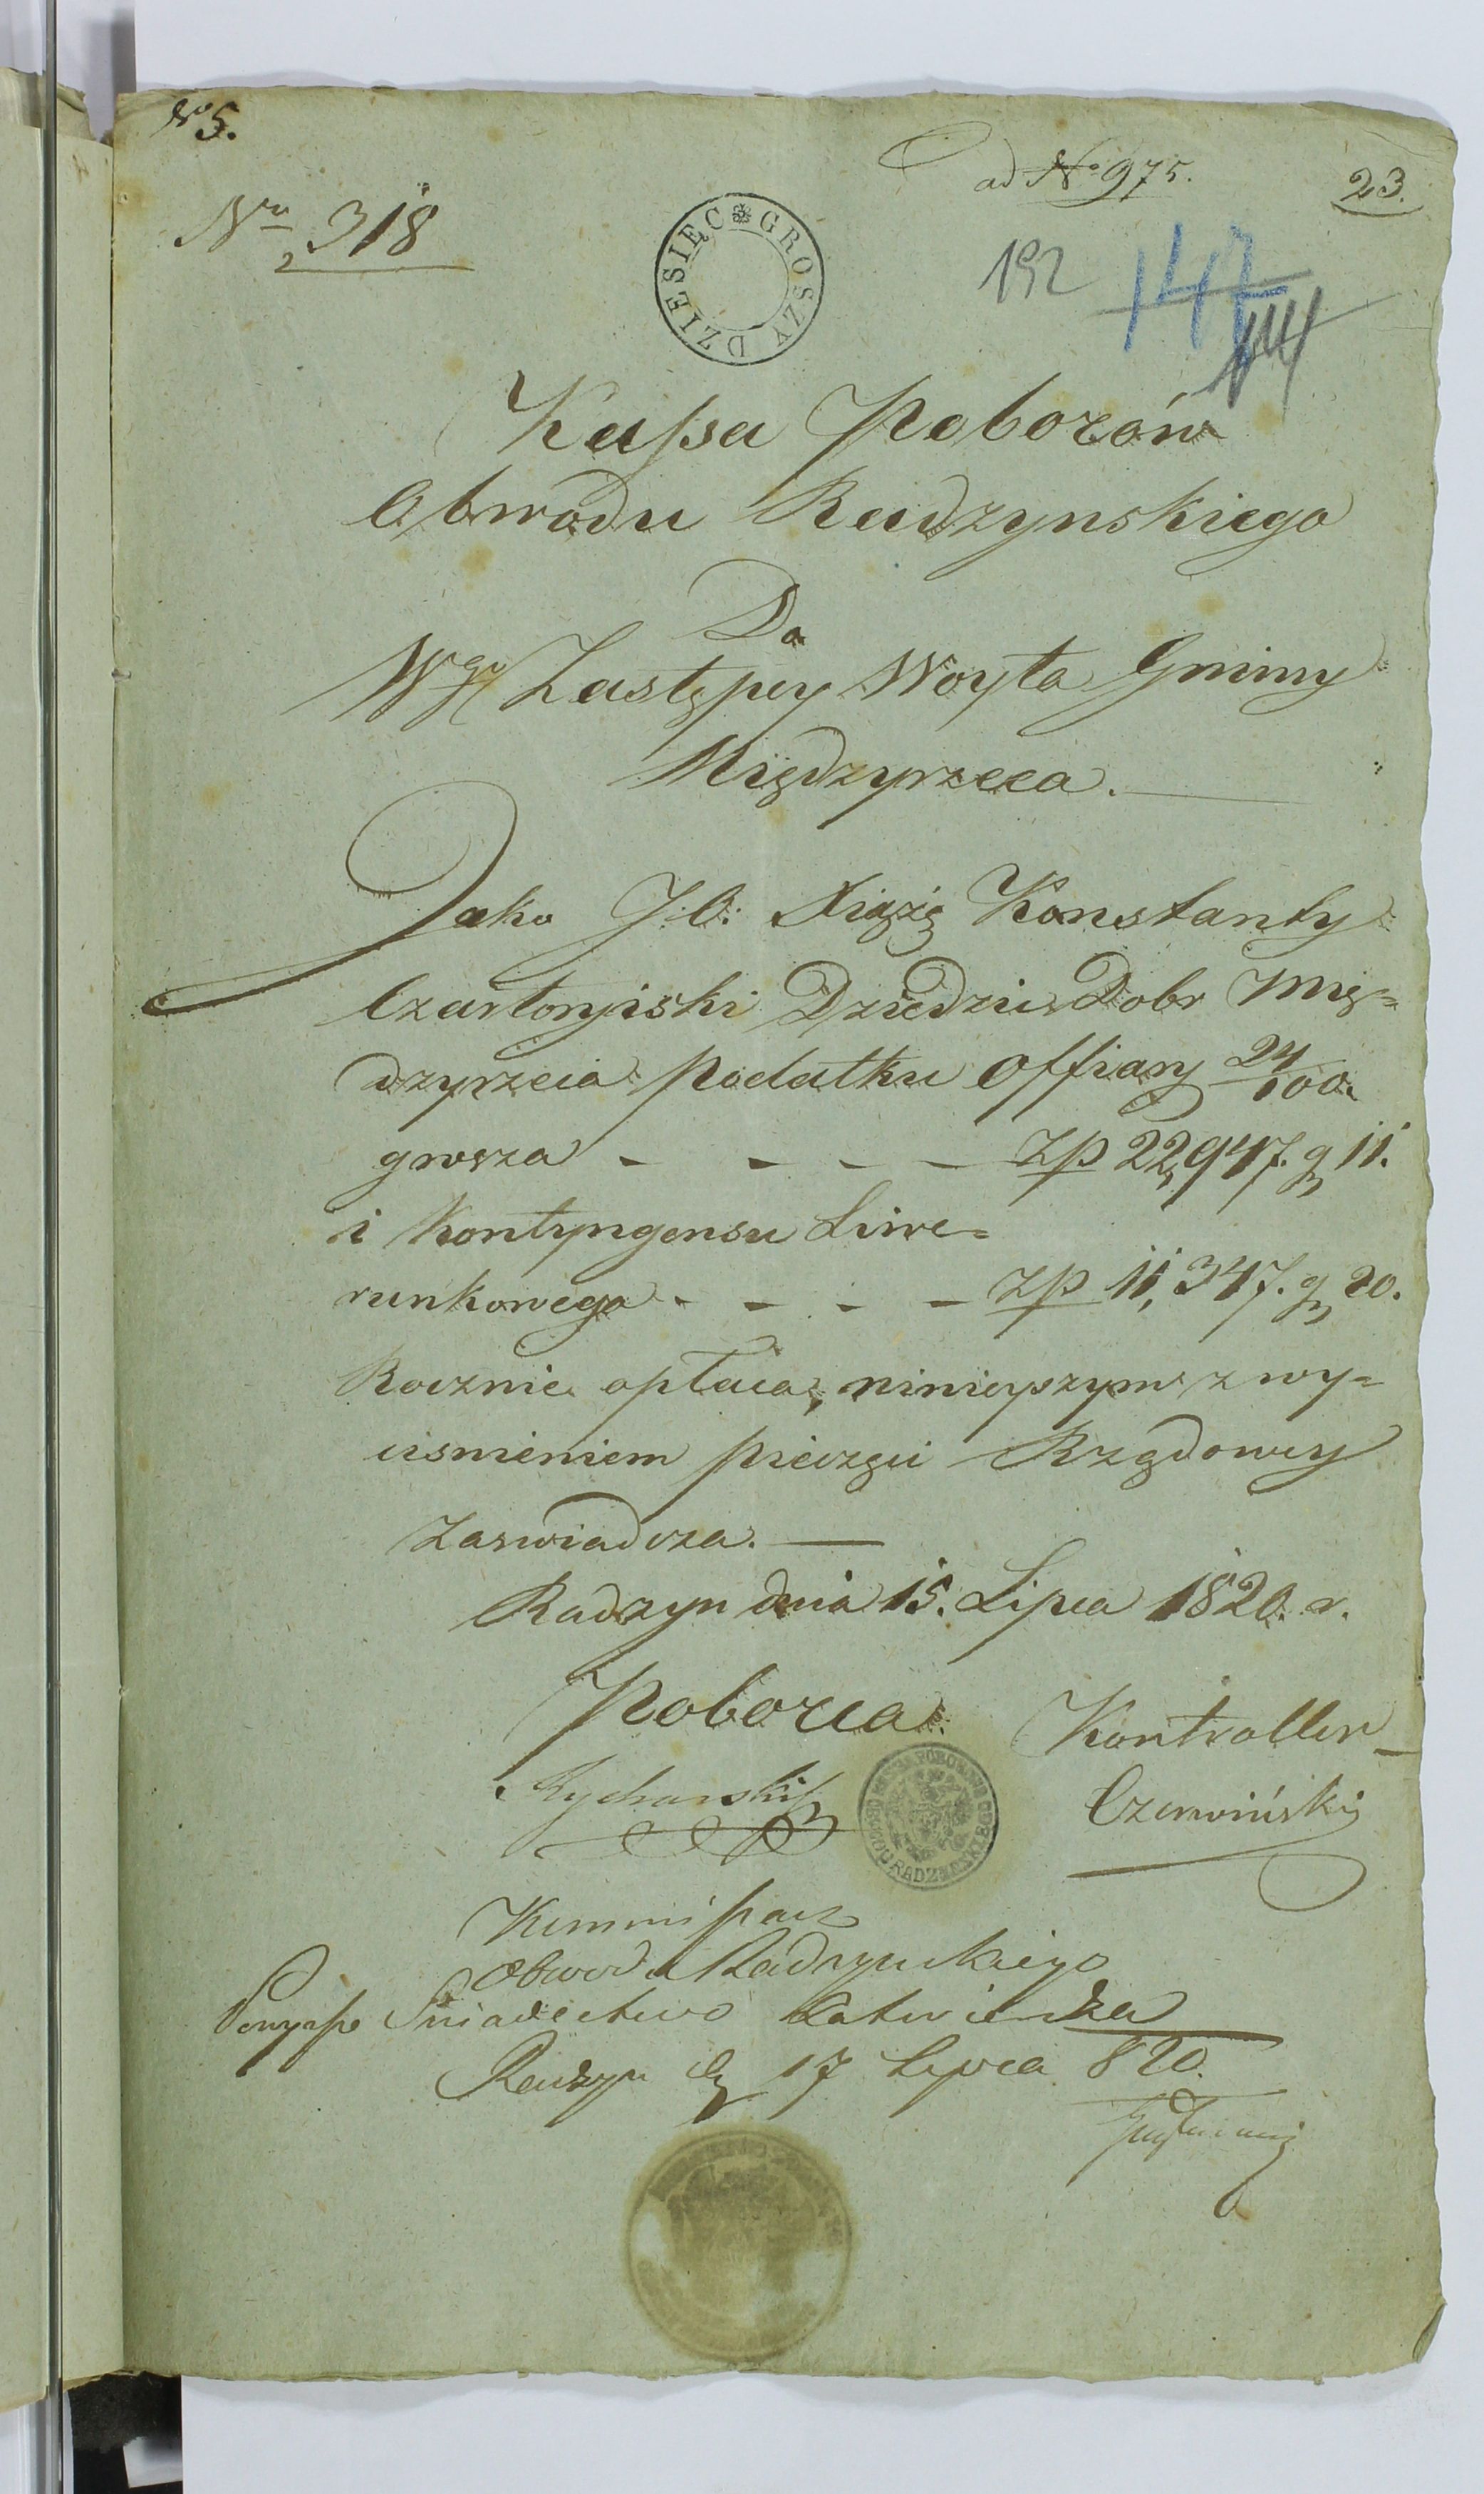 No 5.
ad No 975.
23.
Nro 318
2
DZIESIĘC GROSZY
192
147
144
Kaſsa Poborów
Obwodu Radzynskiego
Do
Wgo Zastępcy Woyta Gminy
Międzyrzeca.
Jako J: O: Xiąże Konstanty
Czartoryiski Dziedzic Dobr Mię=
dzyrzecia podatku Offiary 24/100.
grosza - - - - zp 22,947. g 11.
i Kontyngensu Liwe=
runkowego - - - - zp 11,347. g 20.
Rocznie opłaca, ninieyszym z wy=
cisnieniem pieczęci Rządowey
zaswiadcza.
Radzyn dnia 15. Lipca 1820. r.
Poborca
Kontroller
Rycharski
Czerwiński
Kommiſsarz
Obwodu Radzynskiego
Powyższe Swiadectwo Zatwierdza
Radzyn d. 17 Lipca 820.